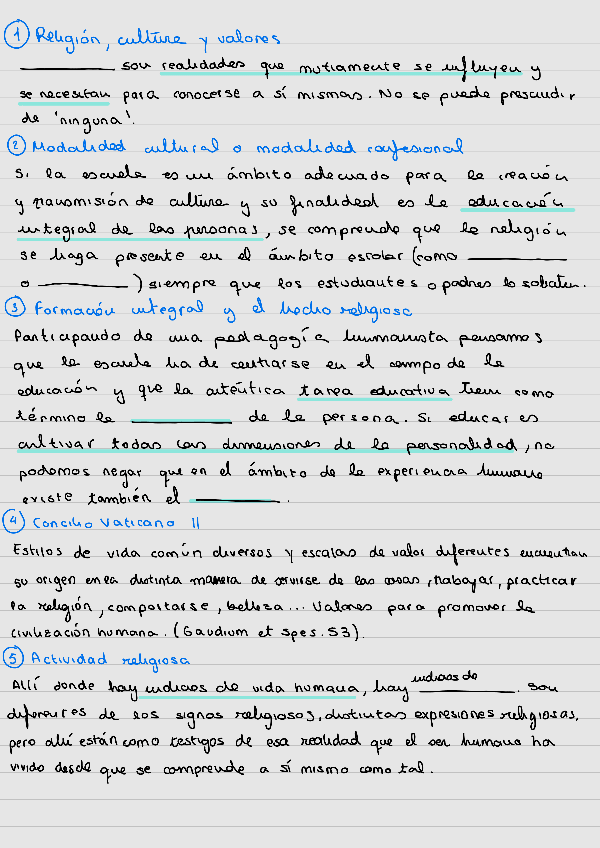 1 Religión, cultura y valores
__________ son realidades que mutuamente se influyen y
se necesitan para conocerse a sí mismas. No se puede prescindir
de 'ninguna'.
2 Modalidad cultural o modalidad confesional
Si la escuela es un ámbito adecuado para la creación
y transmisión de cultura y su finalidad es la educación
integral de las personas, se comprende que la religión
se haga presente en el ámbito escolar (como __________
o __________) siempre que los estudiantes o padres lo soliciten.
3 Formación integral y el hecho religioso
Participando de una pedagogía humanista pensamos
que la escuela ha de centrarse en el campo de la
educación y que la auténtica tarea educativa tiene como
término la __________ de la persona. Si educar es
cultivar todas las dimensiones de la personalidad, no
podemos negar que en el ámbito de la experiencia humana
existe también el __________.
4 Concilio Vaticano II
Estilos de vida común diversos y escalas de valor diferentes encuentran
su origen en la distinta manera de servirse de las cosas, trabajar, practicar
la religión, comportarse, belleza... Valores para promover la
civilización humana. (Gaudium et Spes. 53).
5 Actividad religiosa
Allí donde hay indicios de vida humana, hay indicios de __________. Son
diferentes de los signos religiosos, distintas expresiones religiosas,
pero allí están como testigos de esa realidad que el ser humano ha
vivido desde que se comprende a sí mismo como tal.